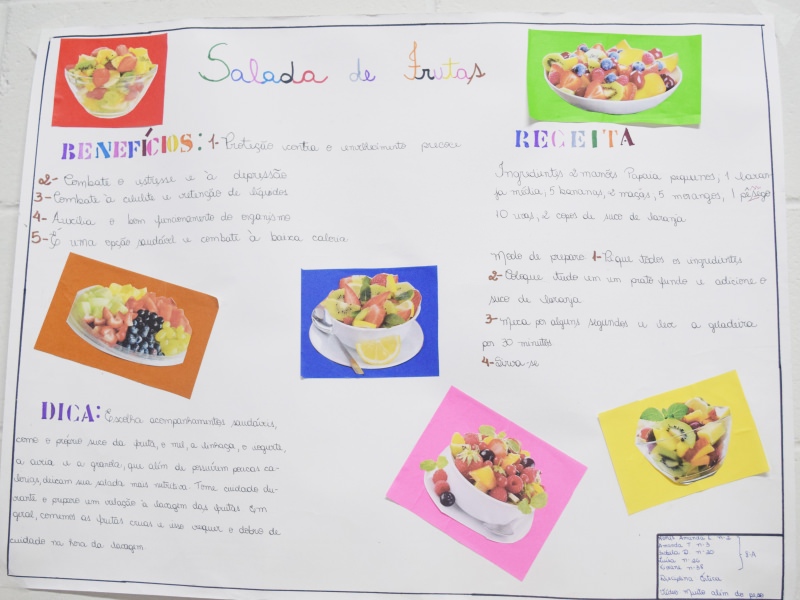 Salada de Frutas
BENEFÍCIOS: 1- Proteção contra o envelhecimento precoce
2- Combate o estresse e à depressão
3- Combate à celulite e retenção de líquidos
4- Auxilia o bom funcionamento do organismo
5- É uma opção saudável e combate à baixa caloria
RECEITA
Ingredientes 2 mamões Papaia pequenos, 1 laran
ja média, 5 bananas, 2 maças, 5 morangos, 1 pêssego
10 uvas, 2 copos de suco de laranja
Modo de preparo 1- Pique todos os ingredientes
2- Coloque tudo em um prato fundo e adicione o
suco de laranja
3- Mexa por alguns segundos e leve a geladeira
por 30 minutos
4- Sirva-se
DICA: Escolha acompanhamentos saudáveis,
como o próprio suco da fruta, o mel, a linhaça, o iogurte,
a aveia e a granola, que além de possuírem poucas ca-
lorias, deixam sua salada mais nutritiva. Tome cuidado du-
rante o preparo em relação à lavagem das frutas. Em
geral, comemos as frutas cruas e isso requer o dobro de
cuidado na hora da lavagem.
Nomes Amanda L n: 2
Amanda T n: 3
n: 20
Luiza n: 26
n: 38
8ªA
Disciplina Ética
Vídeo Muito além do peso